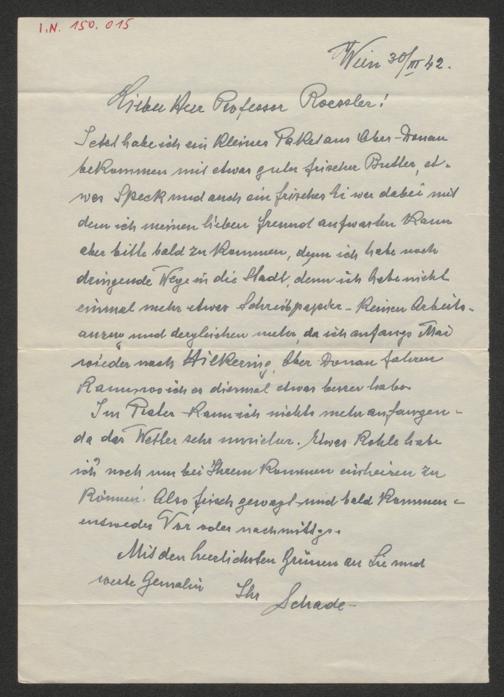 I.N. 150.015
Wien 30/III 42.
Lieber Herr Professor Roessler!
Jetzt habe ich ein kleines Paket aus Ober-Donau
bekommen mit etwas guter frischer Butter, et-
was Speck und auch ein frisches Ei war dabei mit
dem ich meinen lieben Freund aufwarten kann
aber bitte bald zu kommen, denn ich habe noch
dringende Wege in die Stadt, denn ich habe nicht
einmal mehr etwas Schreibpapier - keinen Arbeits-
anzug und dergleichen mehr, da ich anfangs Mai
wieder nach Hilkering, Ober Donau fahren
kann, wo ich es diesmal etwas besser habe.
Im Prater kann ich nichts mehr anfangen -
da das Wetter sehr unsicher. Etwas Kohle habe
ich noch um bei Ihrem Kommen einheizen zu
können. Also frisch gewagt und bald kommen -
entweder Vor oder nachmittgs.
Mit den herzlichsten Grüssen an Sie und
werte Gemalin Ihr
Schade-